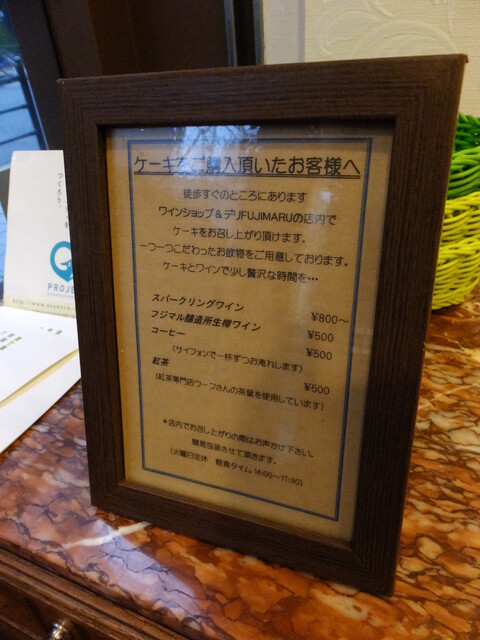 ケーキをご購入頂いたお客様へ
徒歩すぐのところにあります
ワインショップ&デリFUJIMARUの店内で
ケーキをお召し上がり頂けます。
一つ一つこだわったお飲物をご用意しております。
ケーキとワインで少し贅沢な時間を・・・
スパークリングワイン ¥800～
フジマル醸造所生樽ワイン ¥500
コーヒー ¥500
(サイフォンで一杯ずつお淹れします)
紅茶 ¥500
(紅茶専門店ワーフさんの茶葉を使用しています)
*店内でお召し上がりの際はお声かけ下さい。
簡易包装させて頂きます。
(火曜日定休 軽食タイム、14:00～17:30)
つくろう。
PROJE